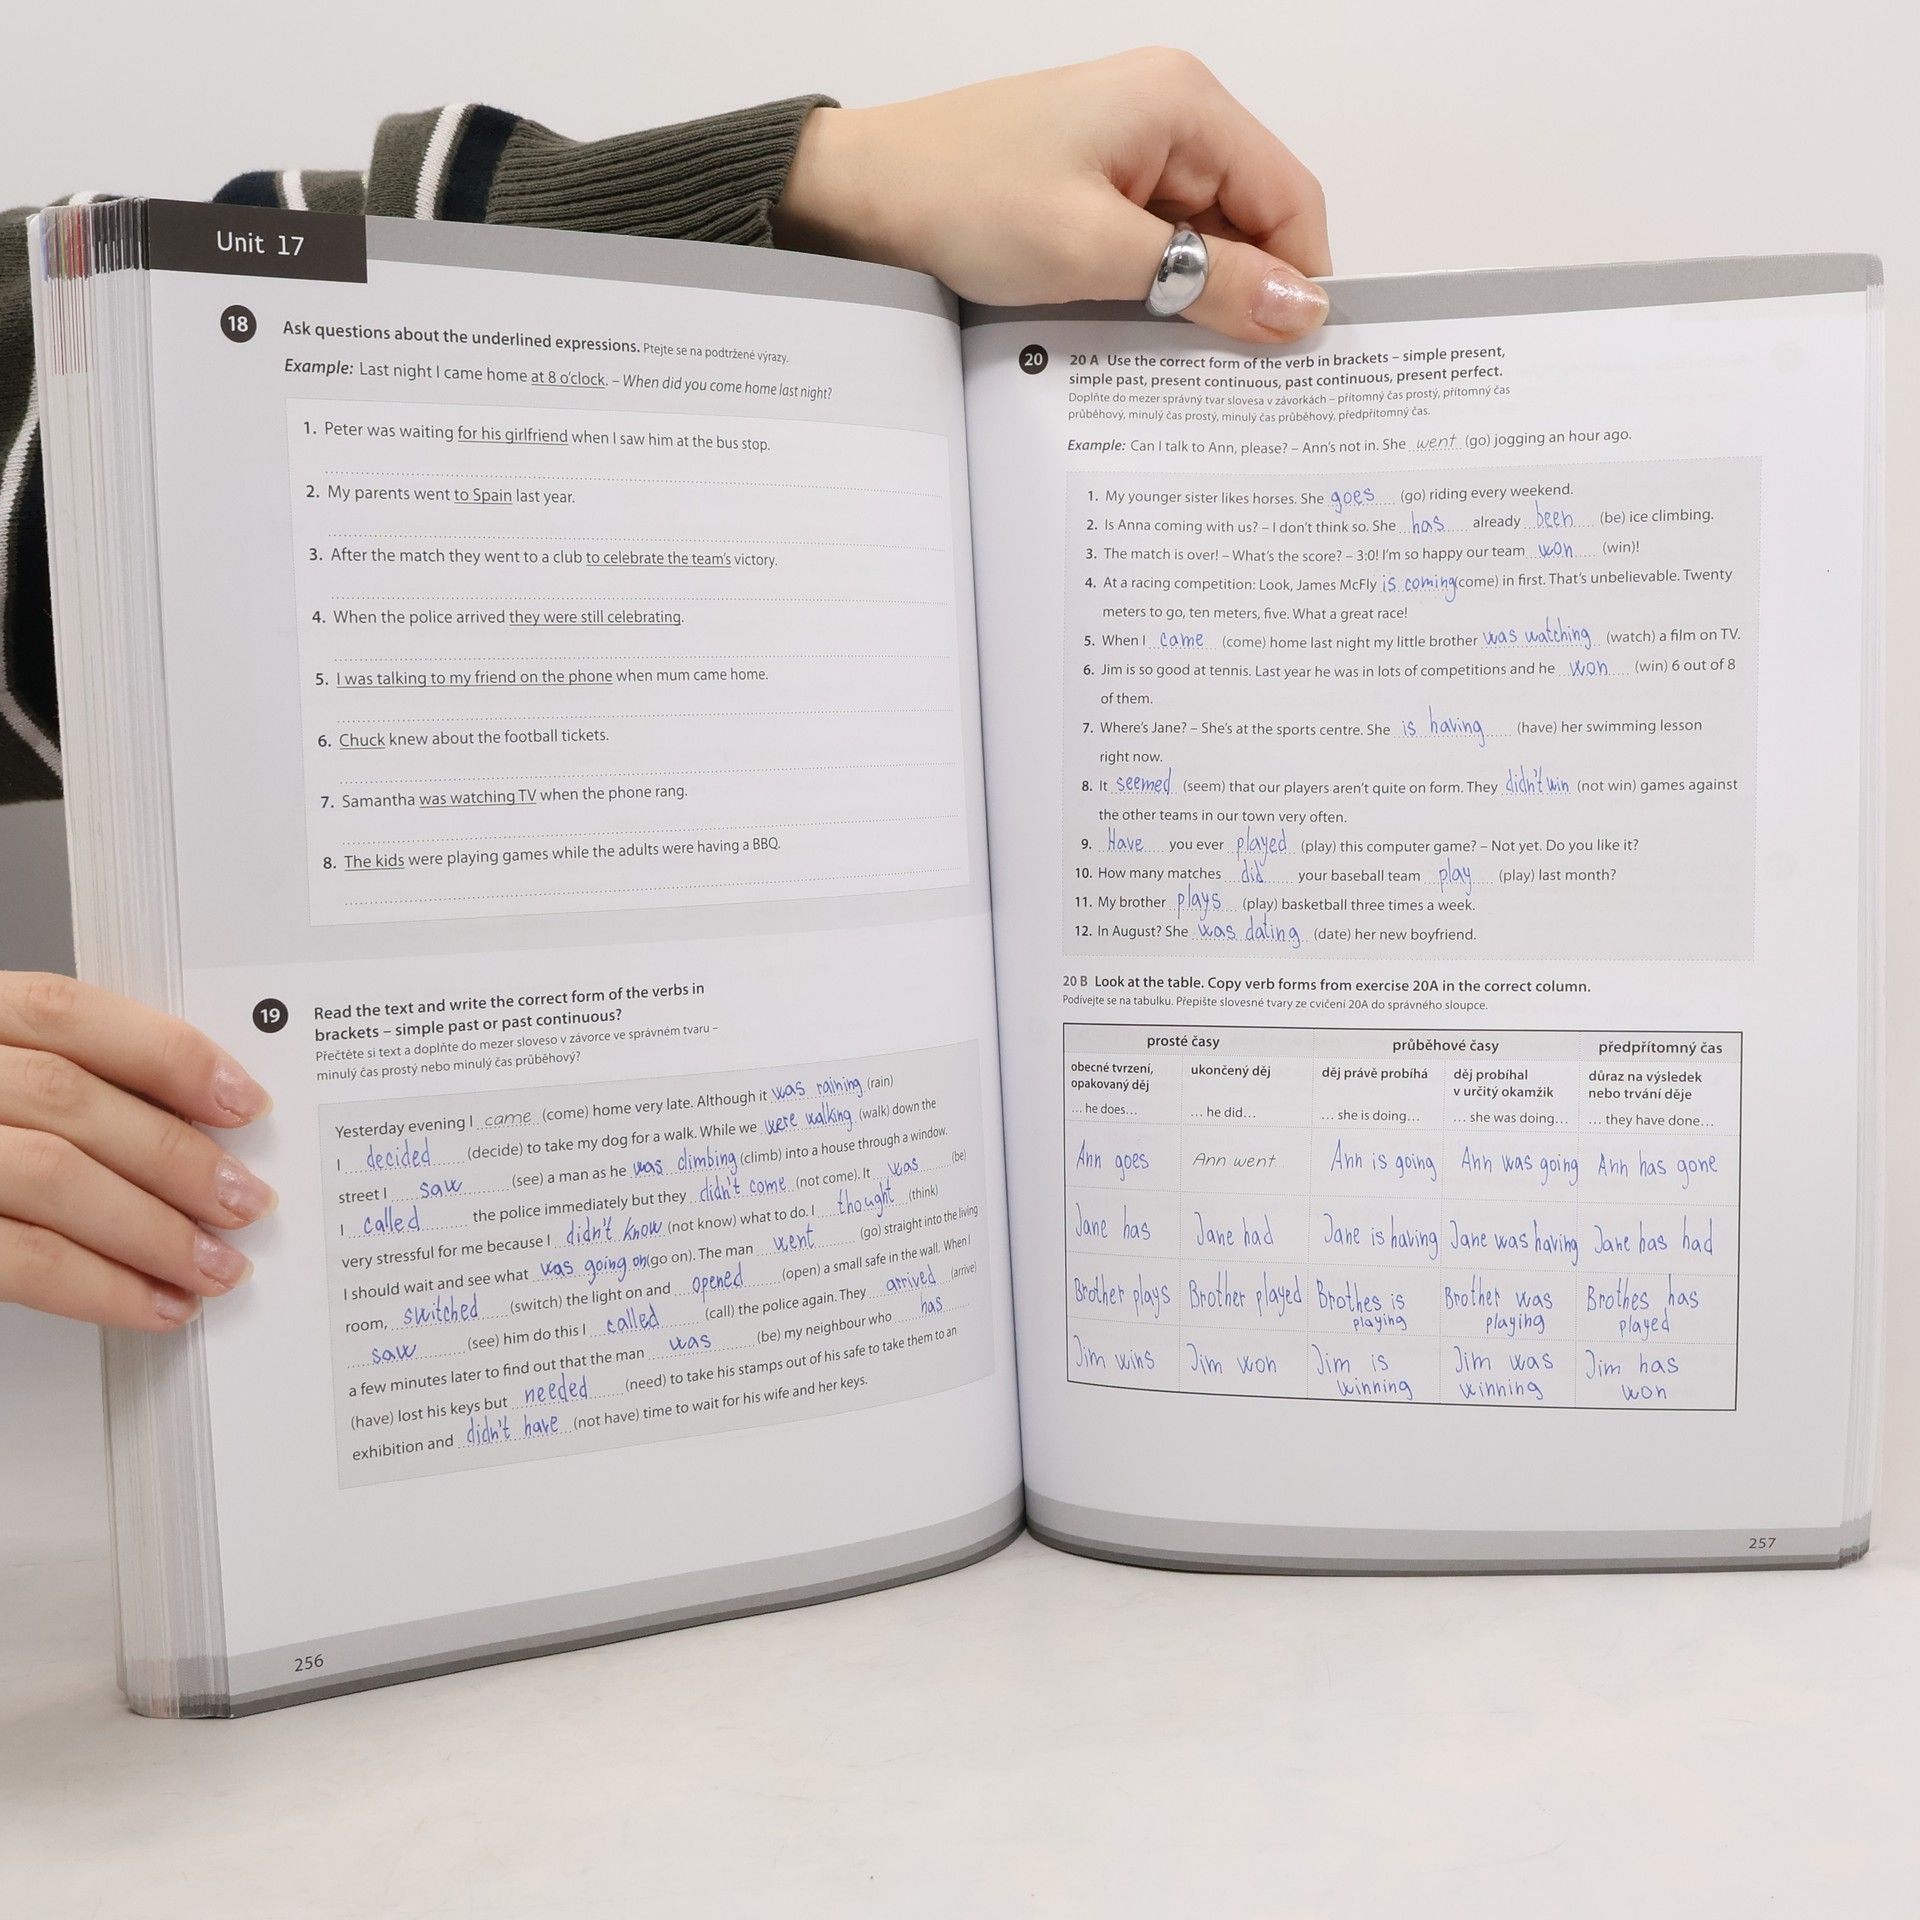 Unit 17
18 Ask questions about the underlined expressions. Ptejte se na podtržené výrazy.
Example: Last night I came home at 8 o'clock. – When did you come home last night?
1. Peter was waiting for his girlfriend when I saw him at the bus stop.
2. My parents went to Spain last year.
3. After the match they went to a club to celebrate the team's victory.
4. When the police arrived they were still celebrating.
5. I was talking to my friend on the phone when mum came home.
6. Chuck knew about the football tickets.
7. Samantha was watching TV when the phone rang.
8. The kids were playing games while the adults were having a BBQ.
19 Read the text and write the correct form of the verbs in
brackets – simple past or past continuous?
Přečtěte si text a doplňte do mezer sloveso v závorce ve správném tvaru –
minulý čas prostý nebo minulý čas průběhový?
Yesterday evening I came (come) home very late. Although it was raining (rain)
I decided (decide) to take my dog for a walk. While we were walking (walk) down the
street I saw (see) a man as he was climbing (climb) into a house through a window.
I called the police immediately but they didn't come (not come). It was (be)
very stressful for me because I didn't know (not know) what to do. I thought (think)
I should wait and see what was going on (go on). The man went (go) straight into the living
room, switched (switch) the light on and opened (open) a small safe in the wall. When I
saw (see) him do this I called (call) the police again. They arrived (arrive)
a few minutes later to find out that the man was (be) my neighbour who has
(have) lost his keys but needed (need) to take his stamps out of his safe to take them to an
exhibition and didn't have (not have) time to wait for his wife and her keys.
256
20 20 A Use the correct form of the verb in brackets – simple present,
simple past, present continuous, past continuous, present perfect.
Doplňte do mezer správný tvar slovesa v závorkách – přítomný čas prostý, přítomný čas
průběhový, minulý čas prostý, minulý čas průběhový, předpřítomný čas.
Example: Can I talk to Ann, please? – Ann's not in. She went (go) jogging an hour ago.
1. My younger sister likes horses. She goes (go) riding every weekend.
2. Is Anna coming with us? – I don't think so. She has already been (be) ice climbing.
3. The match is over! – What's the score? – 3:0! I'm so happy our team won (win)!
4. At a racing competition: Look, James McFly is coming (come) in first. That's unbelievable. Twenty
meters to go, ten meters, five. What a great race!
5. When I came (come) home last night my little brother was watching (watch) a film on TV.
6. Jim is so good at tennis. Last year he was in lots of competitions and he won (win) 6 out of 8
of them.
7. Where's Jane? – She's at the sports centre. She is having (have) her swimming lesson
right now.
8. It seemed (seem) that our players aren't quite on form. They didn't win (not win) games against
the other teams in our town very often.
9. Have you ever played (play) this computer game? – Not yet. Do you like it?
10. How many matches did your baseball team play (play) last month?
11. My brother plays (play) basketball three times a week.
12. In August? She was dating (date) her new boyfriend.
20 B Look at the table. Copy verb forms from exercise 20A in the correct column.
Podívejte se na tabulku. Přepište slovesné tvary ze cvičení 20A do správného sloupce.
prosté časy průběhové časy předpřítomný čas
obecné tvrzení, ukončený děj děj právě probíhá děj probíhal důraz na výsledek
opakovaný děj v určitý okamžik nebo trvání děje
... he does... ... he did... ... she is doing... ... she was doing... ... they have done...
Ann goes Ann went Ann is going Ann was going Ann has gone
Jane has Jane had Jane is having Jane was having Jane has had
Brother plays Brother played Brothes is Brother was Brothes has
playing playing played
Jim wins Jim won Jim is Jim was Jim has
winning winning won
257